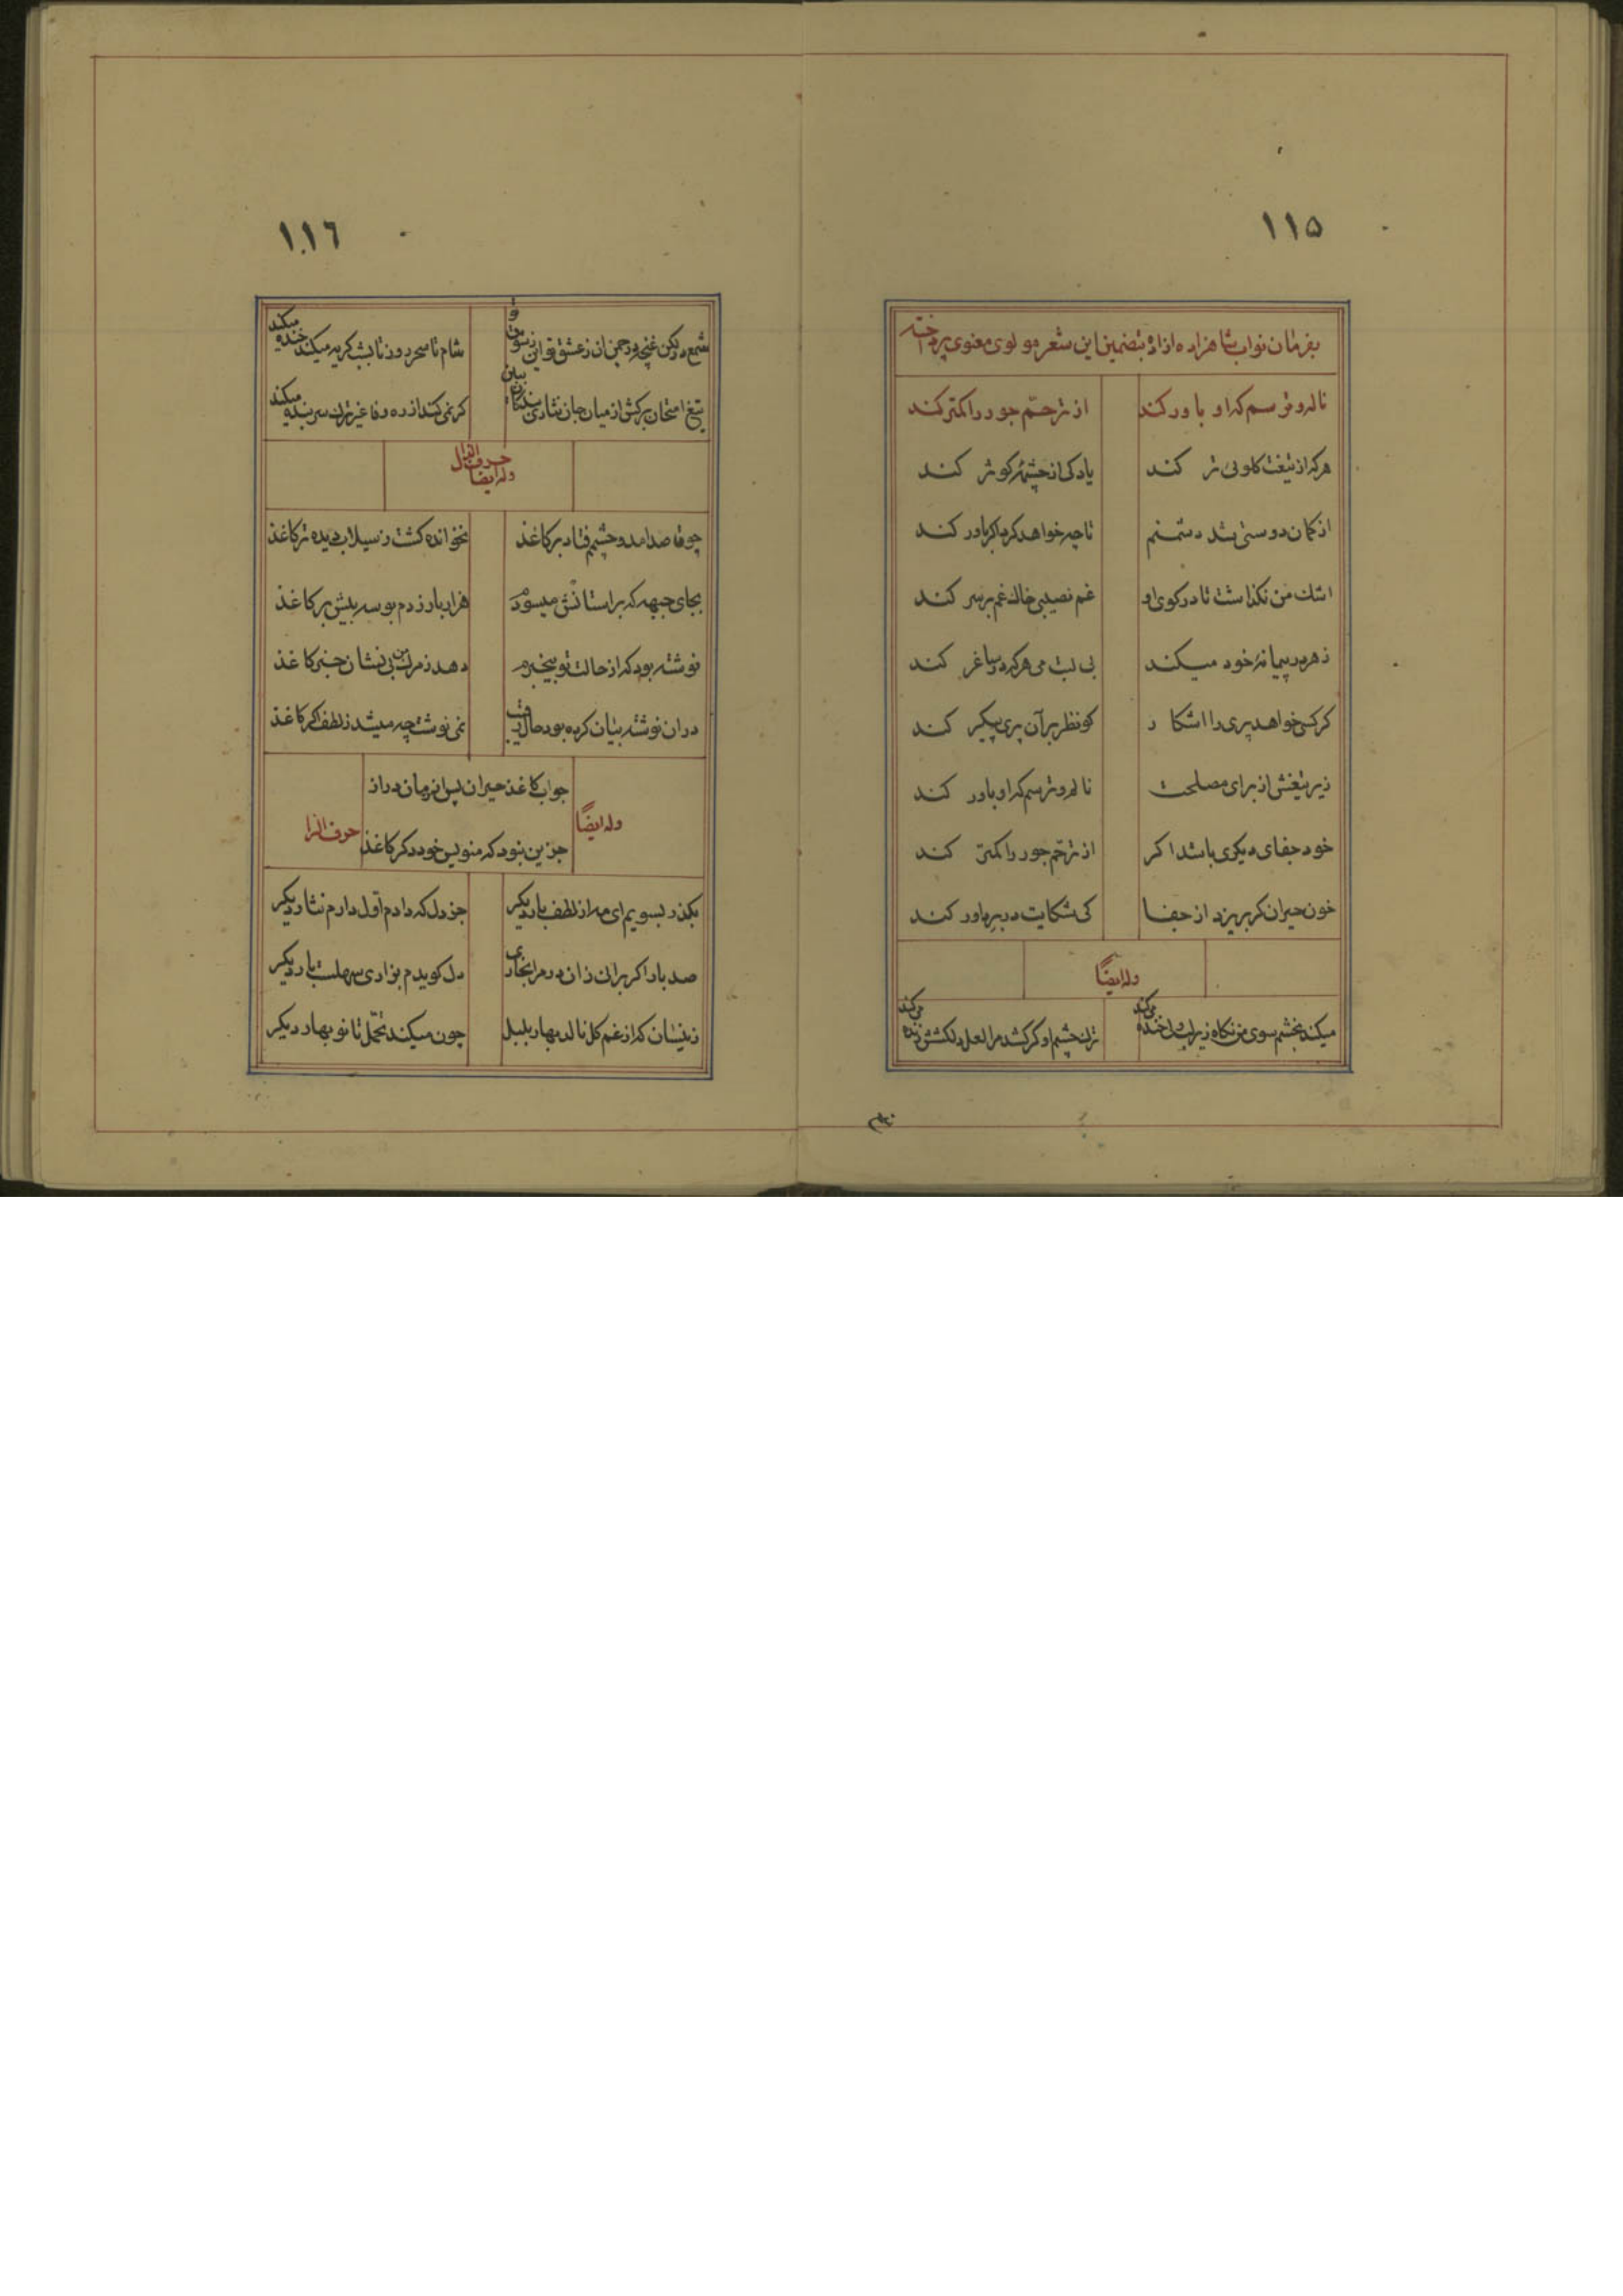 ۱۱۵
بفرمان نواب شاهزاده ازاده بتضمین این شعر مولوی معنوی پرداخته
نالم و ترسم که او باور کند
از ترحّم جور را کمتر کند
هرکه از تیغت کلوئی تر کند
یاد کی از چشمهٔ کوثر کند
از کمان دوستی شد دشمنم
تا چه خواهد کرد اکر باور کند
اشک من نکذاشت تا در کوی او
غم نصیبی خاک غم بر سر کند
زهر در پیمانهٔ خود میکند
بی لبت می هرکه در ساغر کند
کر کسی خواهد پری را اشکار
کو نظر بر آن پری پیکر کند
زیر تیغش از برای مصلحت
نالم و ترسم که او باور کند
خود جفای دیکری باشد اکر
از ترحّم جور را کمتر کند
خون حیران کر بریزد از جفا
کی شکایت در بر داور کند
وله ایضًا
میکند بخشم سوی من نکاه زیر لب ولی خنده میکند
ترک چشم او کر کشد مرا لعل دلکشش زنده میکند
۱۱۶
شمع در لکن غنچه در چمن ان ز عشق تو این ز شوق تو
شام تا سحر روز تا بشب کریه میکند خنده میکند
تیغ امتحان برکش از میان جان نثاری بندکان ببین
کر نمی کند از ره وفا غیر ترک سر بنده میکند
حرف الذال
وله ایضا
چو قاصد امد و چشمم فتاد بر کاغذ
نخوانده کشت ز سیلاب دیده تر کاغذ
بجای جبهه که بر استانش میسودم
هزار بار زدم بوسه بیش بر کاغذ
نوشته بود که از حالت تو بیخبرم
دهد ز مرک من بی نشان خبر کاغذ
در ان نوشته بیان کرده بود حال رقیب
نمی نوشت چه میشد ز لطف اکر کاغذ
وله ایضًا
جواب کاغذ حیران پس از زمان دراز
جز این نبود که منویس خود دکر کاغذ
حرف الرا
بکذر بسویم ای مه از لطف بار دیکر
جز دل که دادم اول دارم نثار دیکر
صد بار اکر براند زان در مرا بخاری
دل کویدم بزاری سهلست بار دیکر
زینسان که از غم کل نالد بهار بلبل
چون میکند تحمّل تا نو بهار دیکر